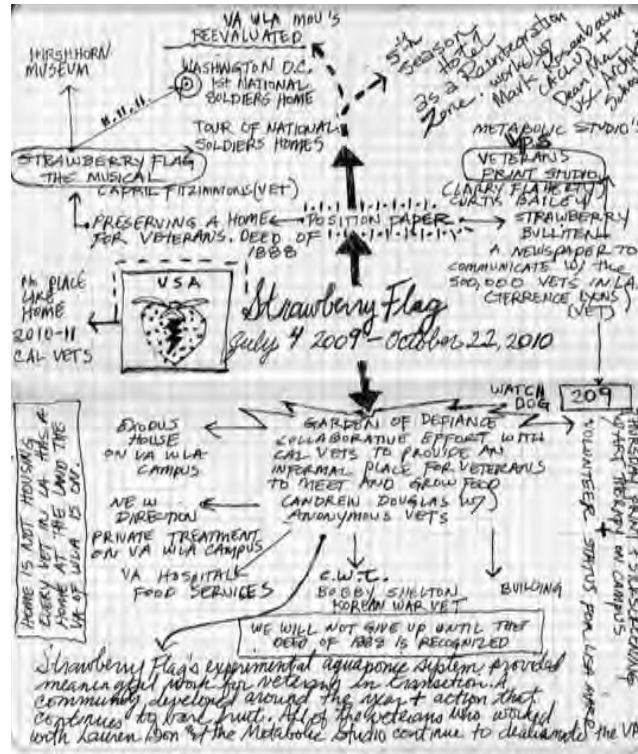 VA WLA MOU'S
REEVALUATED
HIRSHHORN
MUSEUM
WASHINGTON D.C.
1st NATIONAL
SOLDIERS HOME
11.11.11.
TOUR OF NATIONAL
SOLDIERS HOMES
5th
Season
Hotel
as a Reintegration
Zone. working
Mark Rosenbaum
(ACLU) +
Dean
METABOLIC STUDIO'S
VPS
VETERANS
PRINT STUDIO
(LARRY FLAHERTY)
CURTIS BAILEY
STRAWBERRY FLAG
THE MUSICAL
(APRIL FITZIMMIONS (VET)
PRESERVING A HOME
FOR VETERANS. DEED OF
1888
POSITION PAPER
STRAWBERRY
BULLITEN
A NEWSPAPER TO
COMMUNICATE W/ the
500,000 VETS IN LA
(TERRENCE LYONS)
(VET)
NO PLACE
LIKE
HOME
2010-11
CAL VETS
USA
Strawberry Flag
July 4 2009 - October 22, 2010
WATCH
DOG
209
HOME IS NOT HOUSING
EVERY VET IN LA HAS A
HOME AT THE LAND THE
VA OF WLA IS ON.
EXODUS
HOUSE
ON VA WLA
CAMPUS
GARDEN OF DEFIANCE
COLLABORATIVE EFFORT WITH
CAL VETS TO PROVIDE AN
INFORMAL PLACE FOR VETERANS
TO MEET AND GROW FOOD
(ANDREW DOUGLAS W/)
ANONYMOUS VETS
NEW
DIRECTION
PRIVATE TREATMENT
ON VA WLA CAMPUS
VA HOSPITAL
FOOD SERVICES
C.W.T.
BOBBY SHELTON
KOREAN WAR VET
BUILDING
ON CAMPUS
+
VOLUNTEER STATUS FOR
WE WILL NOT GIVE UP UNTIL THE
DEED OF 1888 IS RECOGNIZED
Strawberry Flag's experimental aquaponic system provided
meaningful work for veterans in transition. A
community developed around the year + action that
continues to bare fruit. All of the veterans who worked
with Lauren Bon of the Metabolic Studio continue to the VA